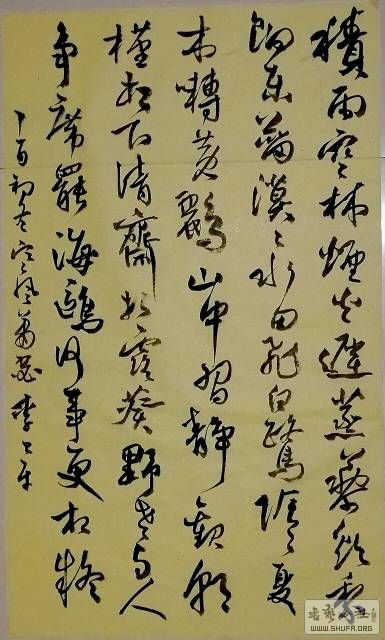 積雨空林煙火遲蒸藜炊黍
餉東菑漠〻水田飛白鷺陰〻夏
木囀黃鸝山中習靜觀朝
槿松下清齋折露葵野老與人
爭席罷海鷗何事更相疑
丁酉初冬 風蕭瑟李
WWW.SHUFA.ORG